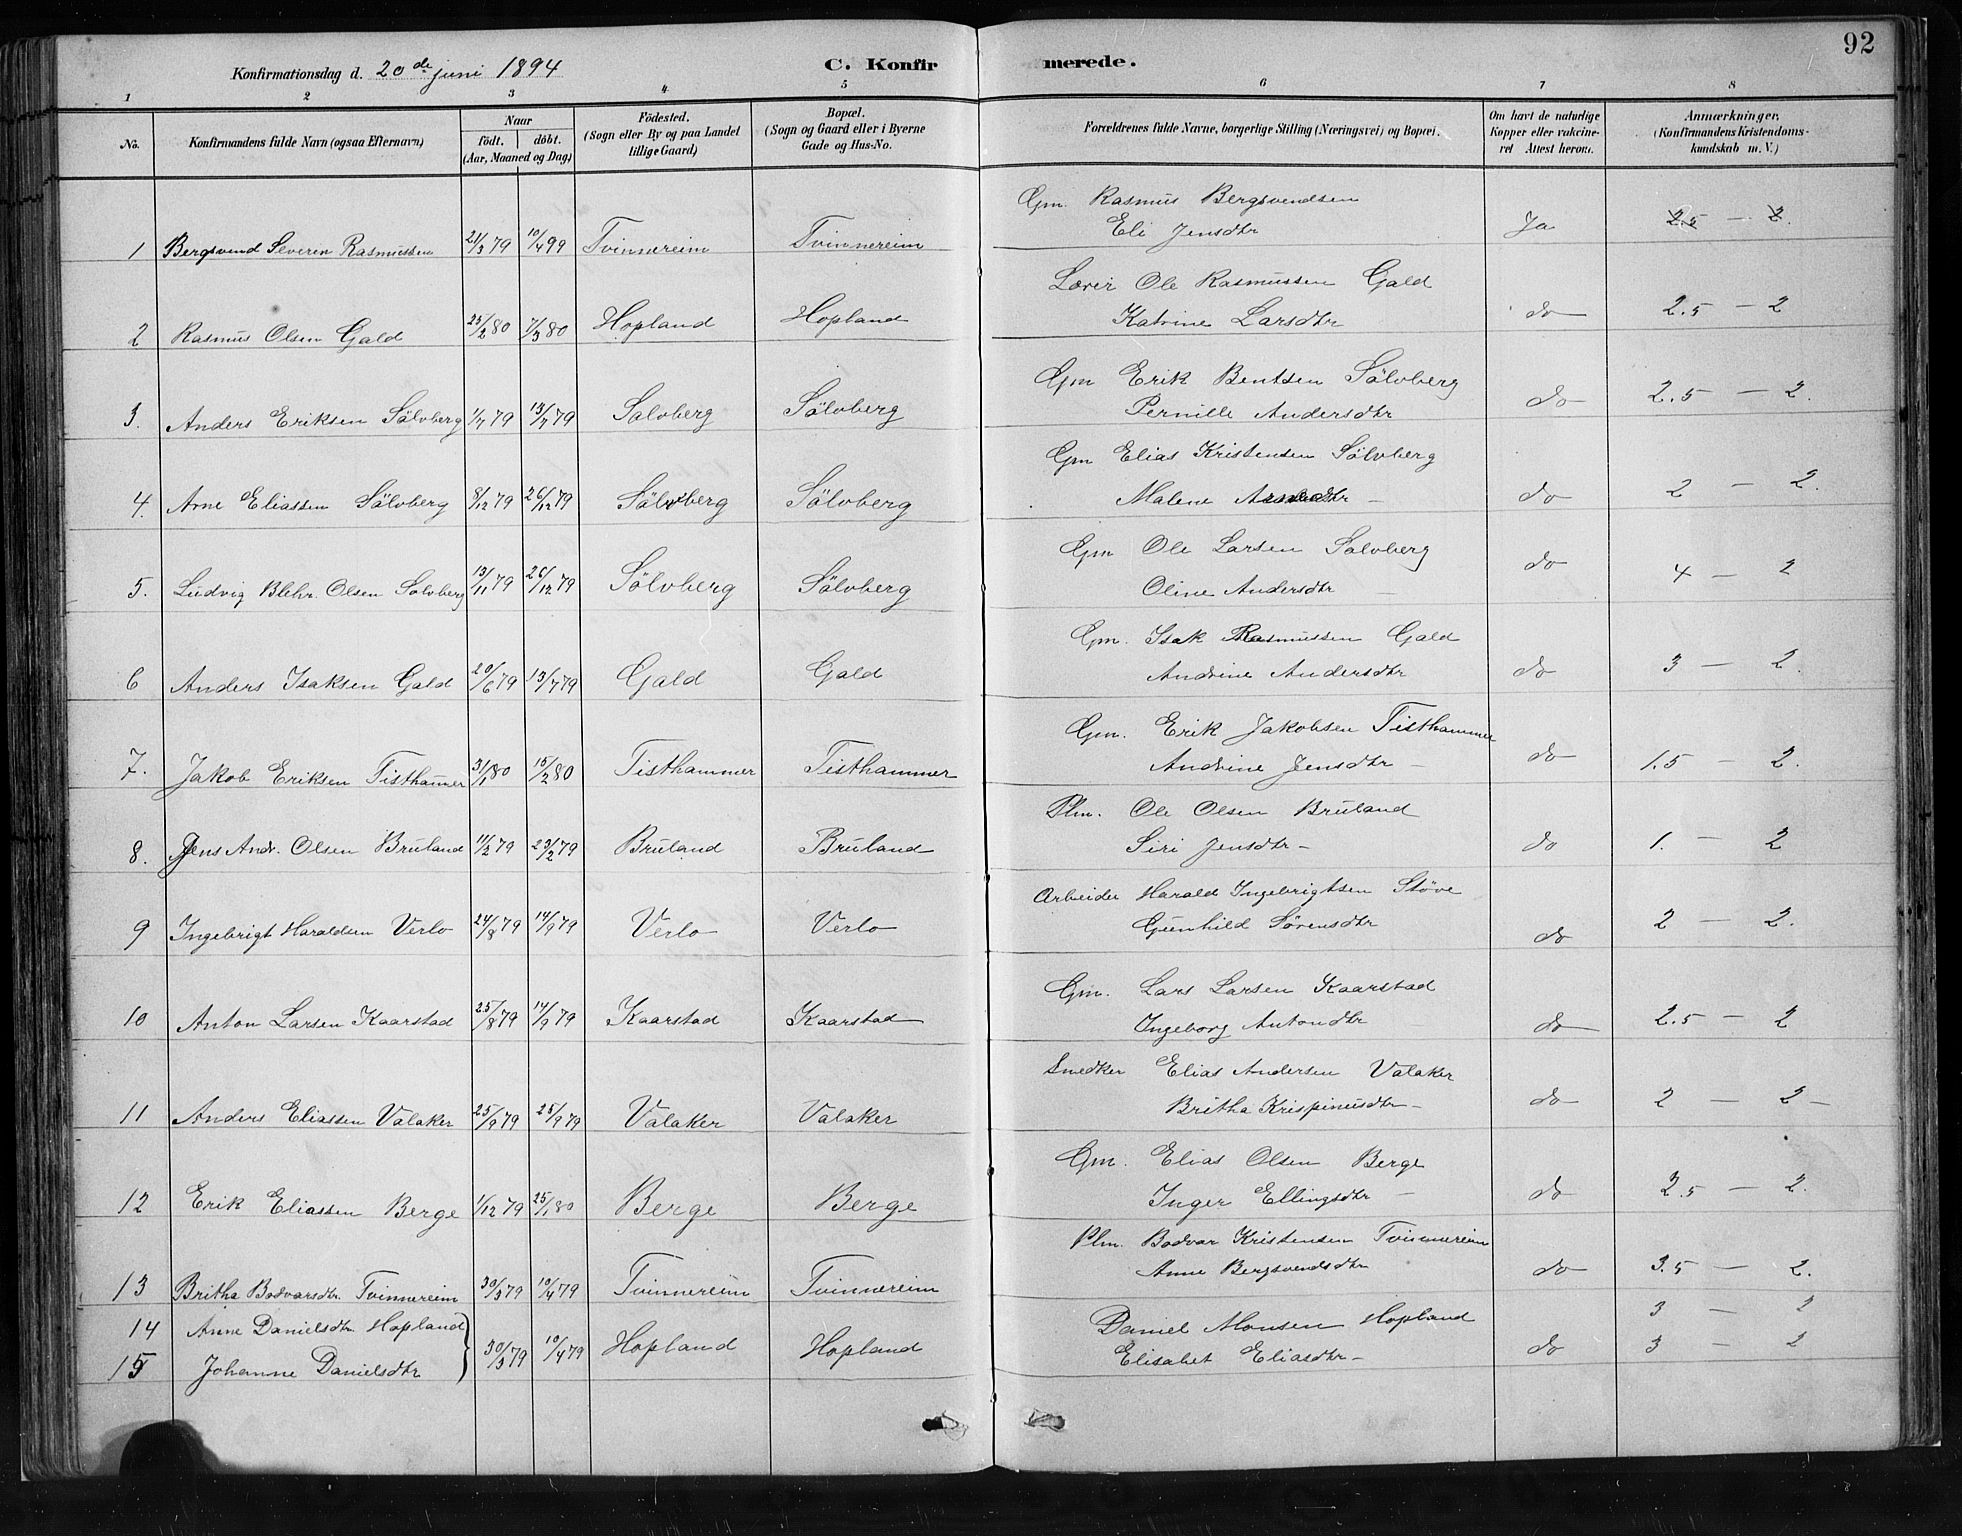 92
Konfirmationsdag d. 20de juni 1894
C. Konfirmerede.
1 2 3 4 5 6 7 8
No. | Konfirmandens fulde Navn (ogsaa Efternavn) | Naar født, døbt. (Aar, Maaned og Dag) | Födested. (Sogn eller By og paa Landet tillige Gaard) | Bopæl. (Sogn og Gaard eller i Byerne Gade og Hus-No. | Forældrenes fulde Navne, borgerlige Stilling (Næringsvei) og Bopæl. | Om havt de naturlige Kopper eller vakcineret Attest herom. | Anmærkninger. (Konfirmandens Kristendomskundskab m. V.)
1 Bergsvend Severin Rasmussen 21/3 79 10/4 99 Tvinnereim Tvinnereim Gm. Rasmus Bergsvendsen
Eli Jensdtr Ja 2.5 — 2.
2 Rasmus Olsen Gald 25/2 80 7/3 80 Hopland Hopland Lærer Ole Rasmussen Gald
Katrine Larsdtr do 2.5 — 2
3. Anders Eriksen Sölvberg 1/7 79 13/7 79 Salvberg Sölvberg Gm Erik Bentsen Sölvberg
Pernille Andersdtr do 2.5 — 2.
4. Arne Eliassen Sölvberg 8/12 79 26/12 79 Sölvberg Sölvberg Gm Elias Kristensen Sölvberg
Malene do 2 — 2.
5. Ludvig Blehr. Olsen Solvberg 13/11 79 26/12 79 Sölvberg Sölvberg Gm Ole Larsen Salvberg
Oline Andersdtr do 4 — 2
6 Anders Isaksen Gald 20/6 79 13/7 79 Gald Gald Gm. Isak Rasmussen Gald
Andrine Andersdtr do 3 — 2.
7. Jakob Eriksen Tisthammer 31/1 80 15/2 80 Tisthammer Tisthammer Gm. Erik Jakobsen Tisthammer
Andrine Jensdtr – do 1.5 — 2.
8. Jens Andr. Olsen Bruland 11/2 79 23/2 79 Bruland Bruland Plm. Ole Olsen Bruland
Siri Jensdtr – do 1. — 2
9 Ingebrigt Haraldsen Verlo 24/8 79 14/9 79 Verlo Verlo Arbeider Harald Ingebrigtsen Støve
Gunhild Sørensdtr do 2 — 2.
10 Anton Larsen Kaarstad 25/8 79 14/9 79 Kaarstad Kaarstad Gm. Lars Larsen Kaarstad
Ingeborg Antondtr do 2.5 — 2
11 Anders Eliassen Valaker 25/9 79 25/9 79 Valaker Valaker Snedker Elias Andersen Valaker
Britha Krispinusdtr – do 2 — 2 –
12 Erik Eliassen Berge 1/12 79 25/1 80 Berge Berge Gm. Elias Olsen Berge
Inger Ellingsdtr – do 2.5 — 2.
13 Britha Bodvarsdtr. Tvinnereim 30/3 79 10/4 79 Tvinnereim Tvinnereim Plm. Bodvar Kristensen Tvinnereim
Anne Bergsvendsdtr do 3.5 — 2.
14 Anne Danielsdtr Hopland 30/3 79 10/4 79 Hopland Hopland Daniel Monsen Hopland 3 — 2
15 Johanne Danielsdtr Elisabet Eliasdtr – do 3 — 2